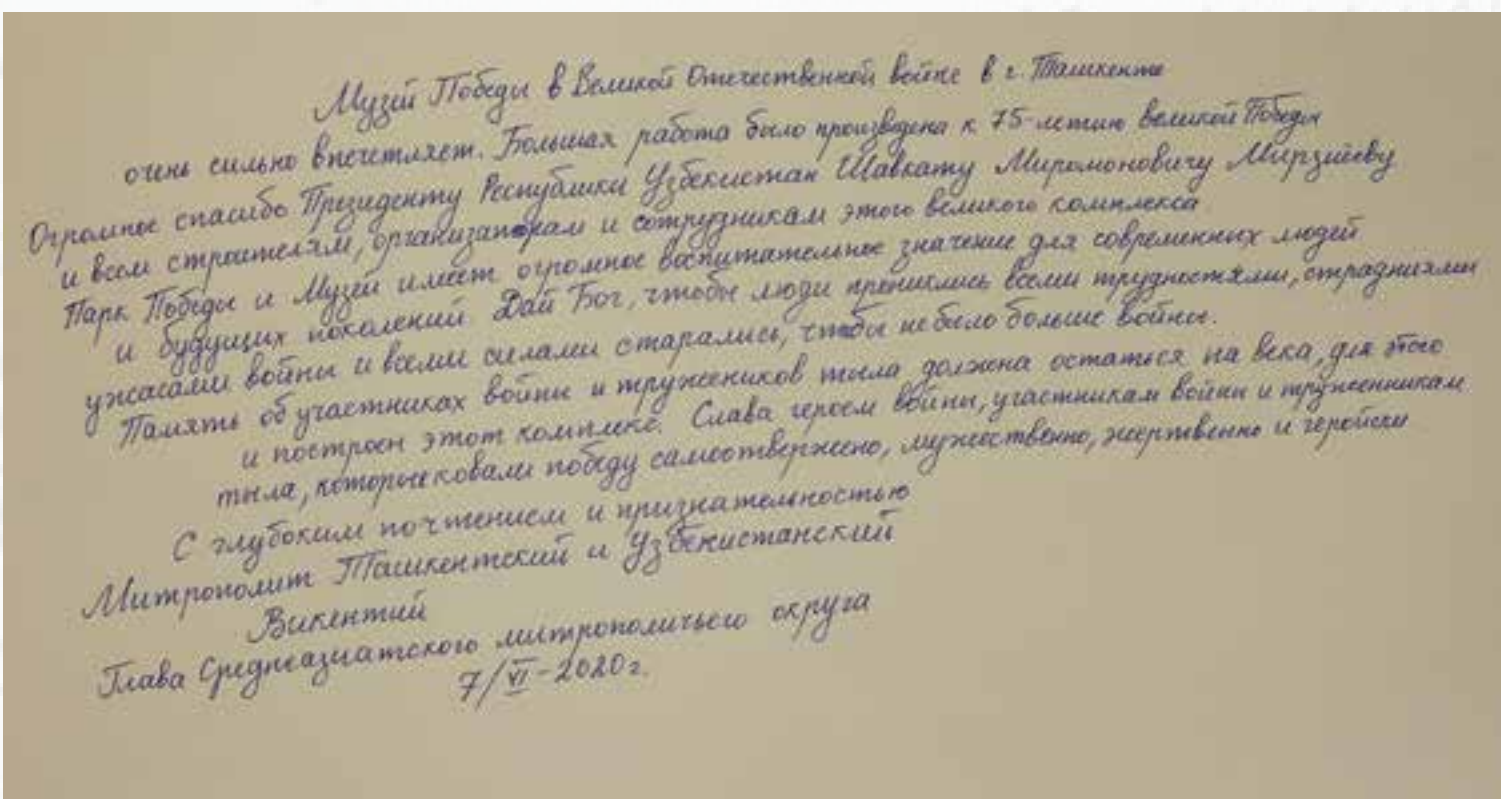 Музей Победы в Великой Отечественной войне в г. Ташкенте
очень сильно впечетляет. Большая работа было произведена к 75-летию великой Победы
Огромное спасибо Президенту Республики Узбекистан Шавкату Миромоновичу Мирзиёеву
и всем строителям, организаторам и сотрудникам этого великого комплекса.
Парк Победы и Музей имеет огромное воспитательное значение для современных людей
и будущих поколений. Дай Бог, чтобы люди прониклись всеми трудностями, страдниями
ужасами войны и всеми силами старались, чтобы не было больше войны.
Память об участниках войны и тружеников тыла должна остаться на века, для этого
и построен этот комплекс. Слава героем войны, участникам войны и труженникам
тыла, которые ковали победу самоотвержено, мужественно, жертвенно и геройски
С глубоким почтением и признательностью
Митрополит Ташкентский и Узбекистанский
Викентий
Глава Среднеазиатского митрополичьего округа
7/VI-2020г.